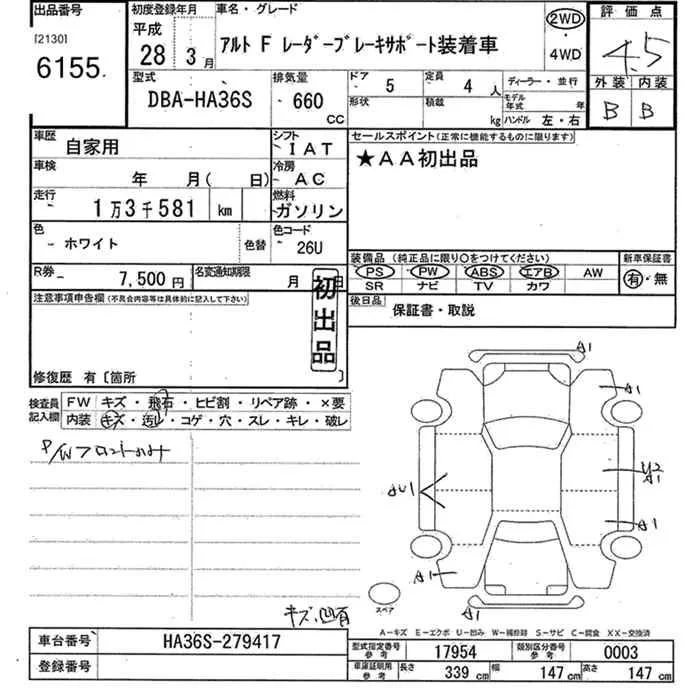 出品番号
[2130]
6155.
初度登録年月
平成
28 3月
車名・グレード
アルト F レーダーブレーキサポート装着車
2WD
・
4WD
評価点
4.5
外装 内装
B B
型式
DBA-HA36S
排気量
660
CC
ドア 5
定員 4 人
形状
積載 kg
ディーラー・並行
モデル年式 年
ハンドル 左・右
車歴
自家用
シフト
IAT
車検
年 月( 日)
冷房
AC
走行
1万3千581 km
燃料
ガソリン
色
ホワイト
色替
色コード
26U
R券
7,500円
名変通知期限
月 日
セールスポイント(正常に機能するものに限ります)
★AA初出品
装備品(純正品に限り○をつけてください)
新車保証書
PS PW ABS エアB AW
SR ナビ TV カワ
有・無
後日品
保証書・取説
注意事項申告欄(不具合内容等は具体的に記入して下さい)
初出品
修復歴 有〔箇所 〕
検査員記入欄
FW キズ・飛石・ヒビ割・リペア跡・×要
内装 キズ・汚レ・コゲ・穴・スレ・キレ・破レ
P/Wフロントのみ
キズ、凹有
A1
A1
U2
A1
AU1
A1
A1
A1
スペア
A-キズ E-エクボ U-凹み W-補修跡 S-サビ C-腐食 XX-交換済
車台番号
HA36S-279417
登録番号
型式指定番号
参考
17954
類別区分番号
参考
0003
車庫証明用
参考
長さ 339 cm
幅 147 cm
高さ 147 cm